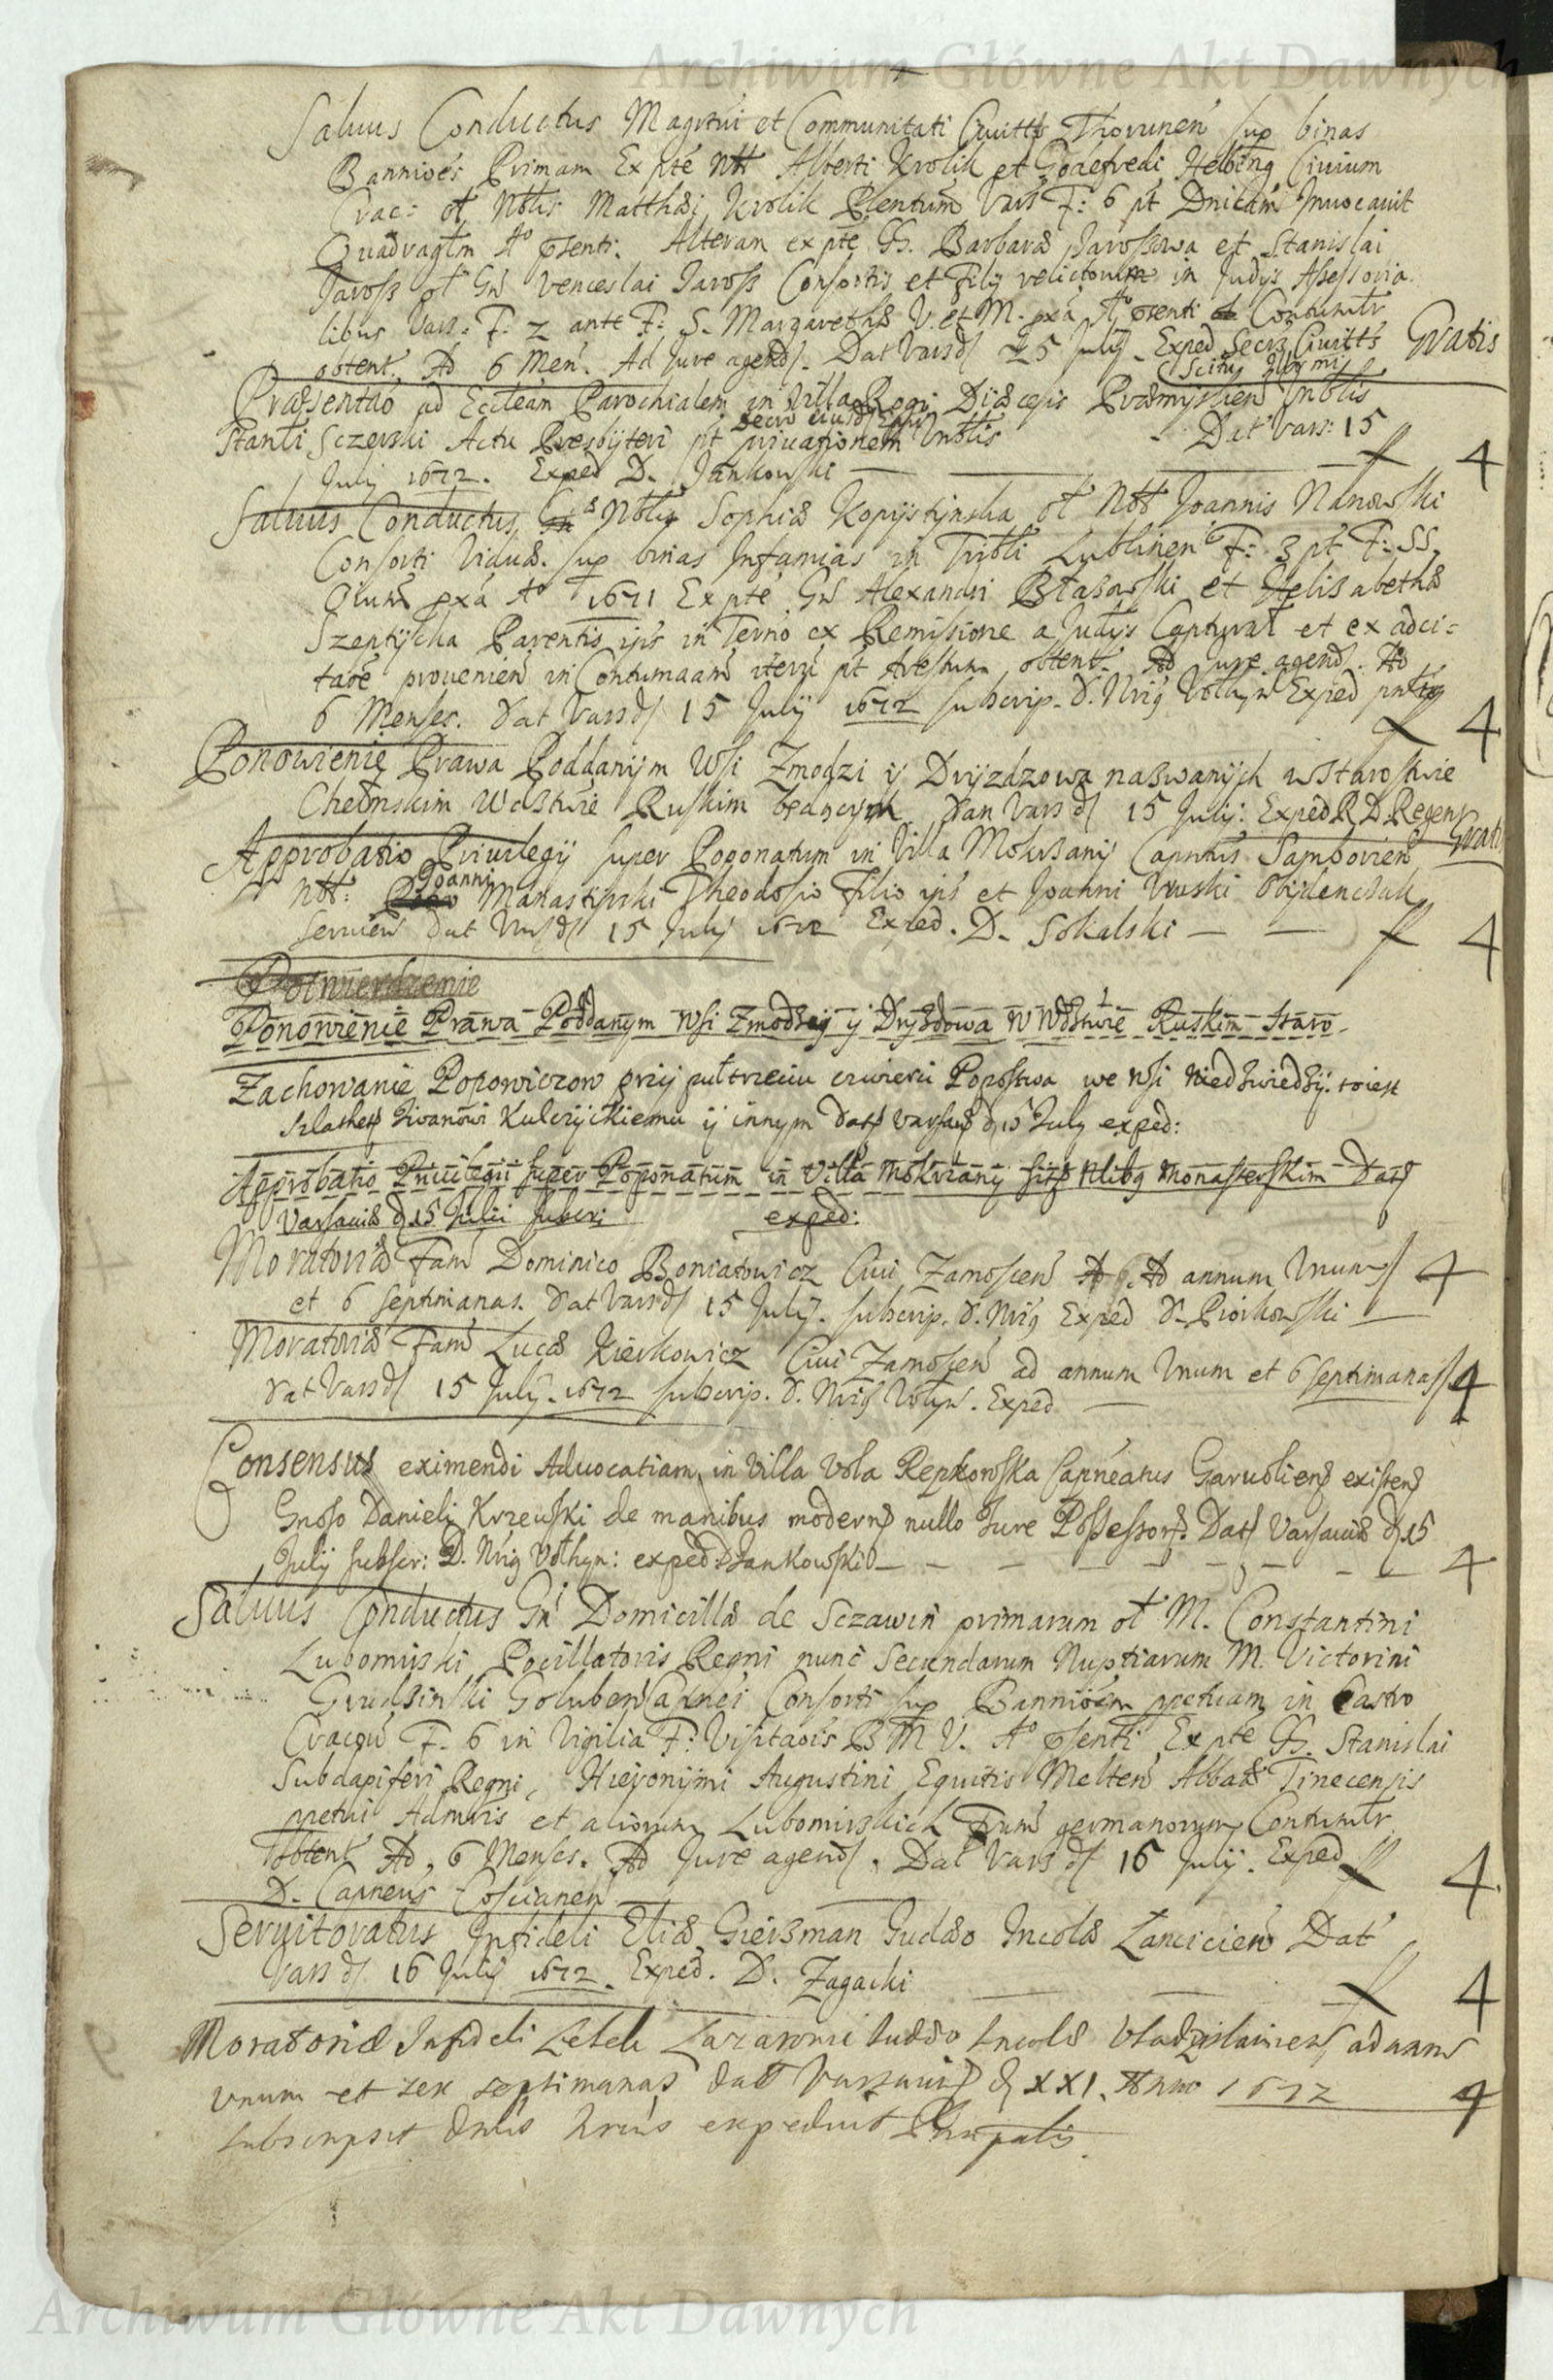 Archiwum Główne Akt Dawnych
Salvus Conductus Magrtui et Communitati Civittis Thorunen sup binas
Bannioes Primam Ex pte Ntt Alberti Krolik et Godefredi Helbing Civium
Crac: ol Nblis Matthæi Krolik Plentum Vars F: 6 pt Dnicam Invocavit
Quadraglm Ao psenti. Alteram ex pte GG. Barbaræ Jarossowa et Stanislai
Jaross ol Gn Venceslai Jaross Consortis et Filij relictorum in Judijs Assessoria
libus Vars. F. 2 ante F: S. Margarethæ V. et M. pxa Ao psenti Contumtr
obtent. Ad 6 Men. Ad Jure agend. Dat Vars d 15 July. Exped Secrs Civitts Gratis
Præsentao ad Ecclean Parochialem in Villa Rogi Diæcesis Præmyslien Vrblis
Stanli Sczerski Actu Presbyteri pt privationem Vrblis Dat Vars: 15
July 1672. Exped D. Jankowski 4
Salvus Conductus Nbli Sophiæ Kopystynska ol Nbb Joannis Nanowski
Consorti Viduæ. sup binas Infamias in Tribli Lublinen F: 3 pt F: SS.
Oium pxa Ao 1671 Ex pte Gn Alexandri Błazowski et Helisabethæ
Szeptycka Parentis ips in Terno ex Remissione a Judys Capturat et ex adci=
taoe provenien in Contumaam iteru pt Arestum obtent. Ad Jure agend. Ad
6 Menses. Dat Vars d 15 July 1672 subscrip. D. Nrig Volhyn Exped 4
Ponowienie Prawa Poddanym Wsi Zmodzi y Dryzdzowa nazwanych w Starostwie
Chełmskim Woiewstwie Ruskim będących Dan Vars d 15 July: Exped R D. Regens Gratis
Approbatio Privilegij super Poponatum in Villa Mokrzany Capntus Samborien
Joanni
Nbb: Manastyrski Theodosio Filio ips et Joanni Uruski Obydenczak
servien Dat Vars d 15 July 1672 Exped. D. Sokalski 4
Potwierdzenie
Ponowienie Prawa Poddanym Wsi Zmodzey y Dryzdowa w Wdztwie Ruskim Staro
Zachowanie Popowiczow przy pułtrzeciu czwierci Popostwa we Wsi Niedzwiedzy: to iest
Szlachet Jwanowi Kulczyckiemu y innym Dat Varsaviæ d 15 July exped:
Approbatio Privilegii super Poponatum in Villa Mokrzany sito Nlibq Monasterskim Dat
Varsaviæ d 15 Julii subscr: exped:
Moratoriæ Fam Dominico Boniatowicz Civi Zamoscen Ad annum Unum 4
et 6 septimanas. Dat Vars d 15 July. subscrip. D. Nrig Exped D. Piorkowski
Moratoriæ Fam Lucæ Kierkowicz Civi Zamoscen ad annum Unum et 6 septimanas 4
Dat Vars d 15 July. 1672 subscrip. D. Nrig Volhyn. Exped
Consensus eximendi Advocatiam in Villa Vola Repkowska Capneatus Garvolien existen
Gnoso Danieli Krzewski de manibus modern nullo Jure Possessor. Dat Varsaviæ d 15
July subscr: D. Nrig Volhyn: exped: D Jankowski 4
Salvus Conductus Gn Domicillæ de Sczawin primarum ol M. Constantini
Lubomirski Pocillatoris Regni nunc Secundarum Nuptiarum M. Victorini
Grudzinski Goluben Capnei Consorti sup Bannioem ppetuam in Castro
Cracou F. 6 in Vigilia F: Visitaois B M V. Ao psenti Ex pte GG. Stanislai
Subdapiferi Regni, Hieronimi Augustini Equitis Melten Abbatis Tinecensis
ppetui Admris et aliorum Lubomirskich Frum germanorum Contumtr
obtent Ad 6 Menses. Ad Jure agend. Dat Vars d 16 July. Exped 4.
D. Capneus Coscianen
Servitoratus Infideli Eliæ Gierszman Judæo Incolæ Lancicien Dat
Vars d 16 July 1672. Exped. D. Zagacki 4
Moratoriæ Infideli Lazarowi Judæo Incolæ Vladzislavien ad annum
unum et sex septimanas dat Varsaviæ d XXI. Anno 1672 4
subscripsit Dnus Nrius expedivit
Archiwum Główne Akt Dawnych